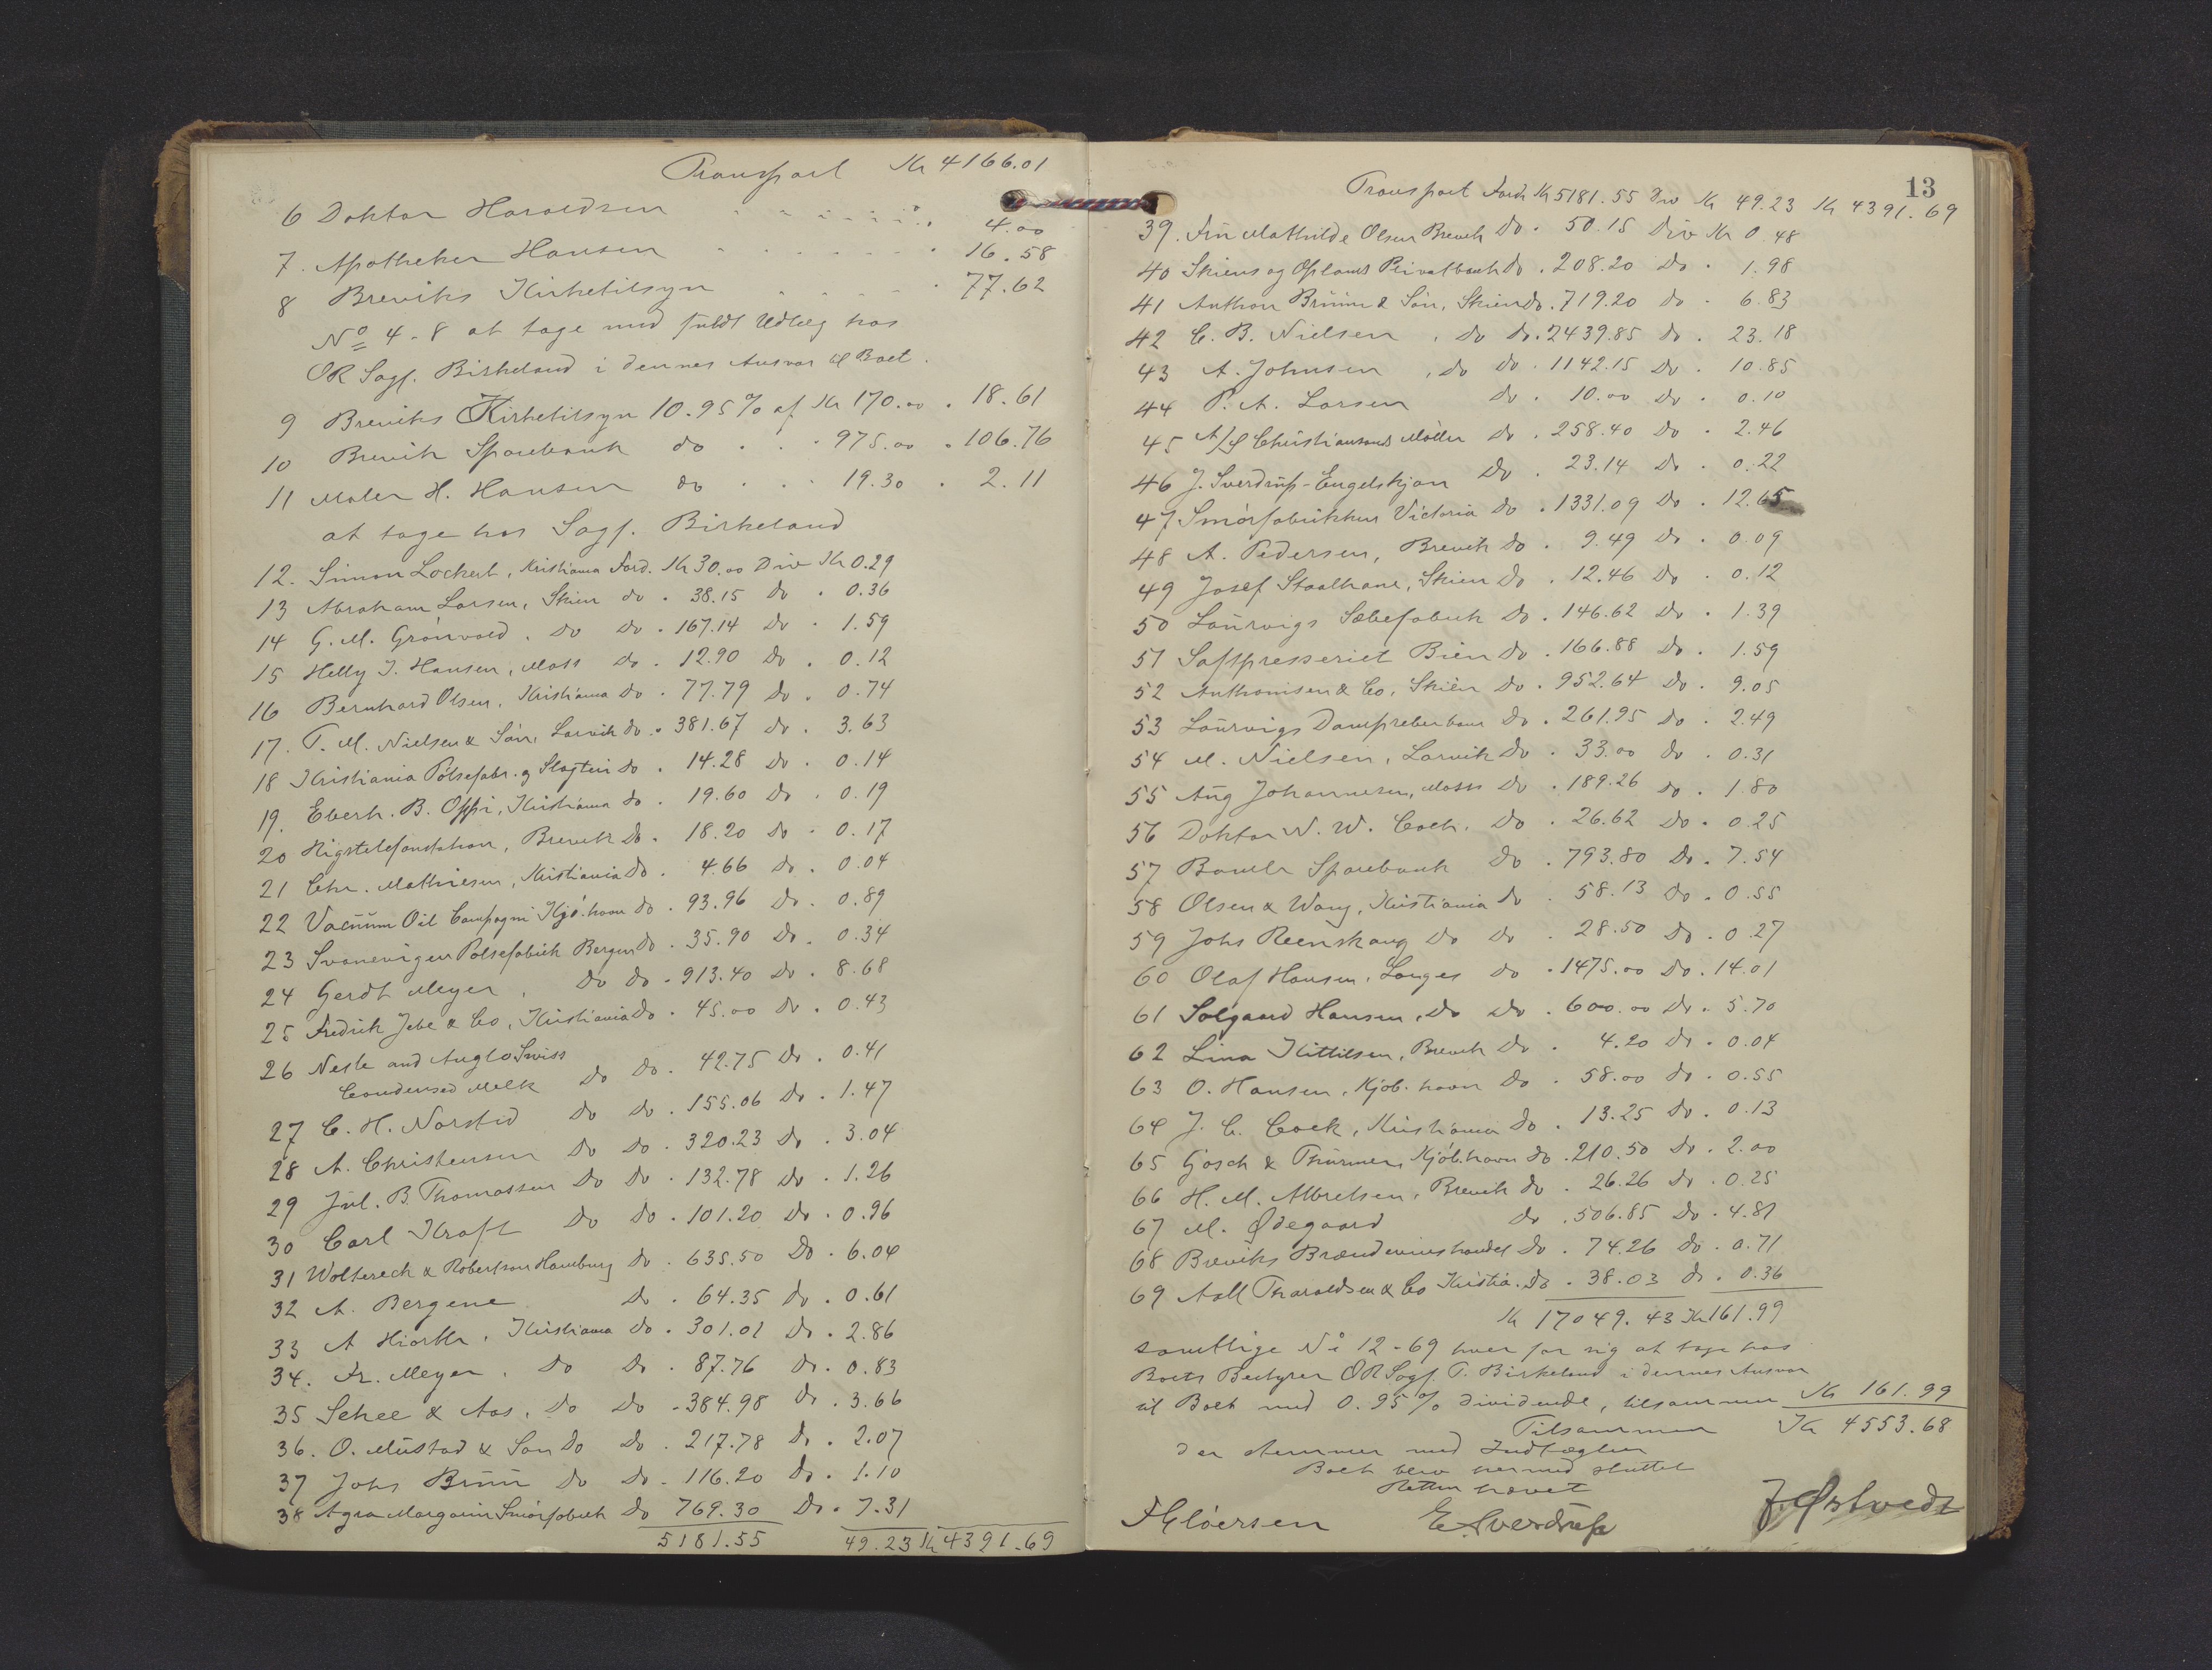 Transport Kr 4166.01
6 Doktor Haraldsen 4.00
7. Apotheker Hansen 16.58
8 Breviks Kirketilsyn 77.62
No 4-8 at tage med fuldt Udlæg hos
OR Sagf. Birkeland i dennes Ansvar til Boet.
9 Breviks Kirketilsyn 10.95% af Kr 170.00 . 18.61
10 Brevik Sparebank do . . 975.00 . 106.76
11 Maler H. Hansen do . . 19.30 . 2.11
at tage hos Sagf. Birkeland
12. Simon Lockert, Kristiania Ford. Kr 30.00 Div Kr 0.29
13 Abraham Larsen, Skien do . 38.15 do . 0.36
14 G. M. Grönvold. do do . 167.14 do . 1.59
15 Helly J. Hansen, Moss do . 12.90 do . 0.12
16 Bernhard Olsen, Kristiania do . 77.79 do . 0.74
17. T. M. Nielsen & Sön, Larvik do . 381.67 do . 3.63
18 Kristiania Pölsefabr. og Slagteri do . 14.28 do . 0.14
19. Eberh. B. Oppi, Kristiania do . 19.60 do . 0.19
20 Rigstelefonstation, Brevik do . 18.20 do . 0.17
21 Chr. Mathiesen, Kristiania do . 4.66 do . 0.04
22 Vacuum Oil Compagni Kjö.havn do . 93.96 do . 0.89
23 Svanevigen Pölsefabrik Bergen do . 35.90 do . 0.34
24 Gerdt Meyer, do do . 913.40 do . 8.68
25 Fredrik Jebe & Co, Kristiania do . 45.00 do . 0.43
26 Nestle and Anglo Swiss
Condensed Melk do do . 42.75 do . 0.41
27 C. H. Norsted do do . 155.06 do . 1.47
28 A. Christensen do do . 320.23 do . 3.04
29 Jul. B. Thomassen do do . 132.78 do . 1.26
30 Carl Kraft do do . 101.20 do . 0.96
31 Woltereck & Robertson Hamburg do . 635.50 do . 6.04
32 A. Bergene do . 64.35 do . 0.61
33 A Hiorth, Kristiania do . 301.01 do . 2.86
34. Fr. Meyer, do do . 87.76 do . 0.83
35 Schee & Aas, do do . 384.98 do . 3.66
36. O. Mustad & Sön do do . 217.78 do . 2.07
37 Johs Bruun do do . 116.20 do . 1.10
38 Agra Margarin Smörfabrik do 769.30 do . 7.31
5181.55 49.23 Kr 4391.69
13
Transport Ford Kr 5181.55 Div Kr 49.23 Kr 4391.69
39. Frü Mathilde Olsen Brevik do . 50.15 Div Kr 0.48
40 Skiens og Oplands Privatbank do . 208.20 do . 1.98
41 Anthon Brüun & Sön, Skien do . 719.20 do . 6.83
42 C. B. Nielsen, do do . 2439.85 do . 23.18
43 A. Johnsen, do do . 1142.15 do . 10.85
44 P. A. Larsen do . 10.00 do . 0.10
45 A/S Christianssands Møller do . 258.40 do . 2.46
46 J. Sverdrup-Engelskjøn do . 23.14 do . 0.22
47 Smörfabrikken Victoria do . 1331.09 do . 12.65
48 A. Pedersen, Brevik do . 9.49 do . 0.09
49 Josef Staalhane, Skien do . 12.46 do . 0.12
50 Laurvigs Sæbefabrik do . 146.62 do . 1.39
51 Saftpresseriet Bien do . 166.88 do . 1.59
52 Anthonisen & Co, Skien do . 952.64 do . 9.05
53 Laurvigs Dampreberbane do . 261.95 do . 2.49
54 M. Nielsen, Larvik do . 33.00 do . 0.31
55 Aug Johannesen, Moss do . 189.26 do . 1.80
56 Doktor N. W. Coch. do . 26.62 do . 0.25
57 Bamle Sparebank do . 793.80 do . 7.54
58 Olsen & Wang, Kristiania do . 58.13 do . 0.55
59 Johs Reenskaug do do . 28.50 do . 0.27
60 Olaf Hansen, Langes do . 1475.00 do . 14.01
61 Solgaard Hansen, do do . 600.00 do . 5.70
62 Lina Kittilsen, Brevik do . 4.20 do . 0.04
63 O. Hansen, Kjöb.havn do . 58.00 do . 0.55
64 J. C. Cock, Kristiania do . 13.25 do . 0.13
65 Gosch & Thürmer, Kjöb.havn do . 210.50 do . 2.00
66 H. M. Albretsen, Brevik do . 26.26 do . 0.25
67 M. Ødegaard do . 506.85 do . 4.81
68 Breviks Brændevinshandel do . 74.26 do . 0.71
69 Aall Tharaldsen & Co Kristia. do . 38.03 do . 0.36
Kr 17049.43 Kr 161.99
samtlige No 12-69 hver for sig at tage hos
Boets Bestyrer OR Sagf. T. Birkeland i dennes Ansvar
til Boet med 0.95% dividende, tilsammen Kr 161.99
Tilsammen Kr 4553.68
der stemmer med Indtægten
Boet blev hermed sluttet
Retten hævet
F Gløersen E. Sverdrup J. Østvedt